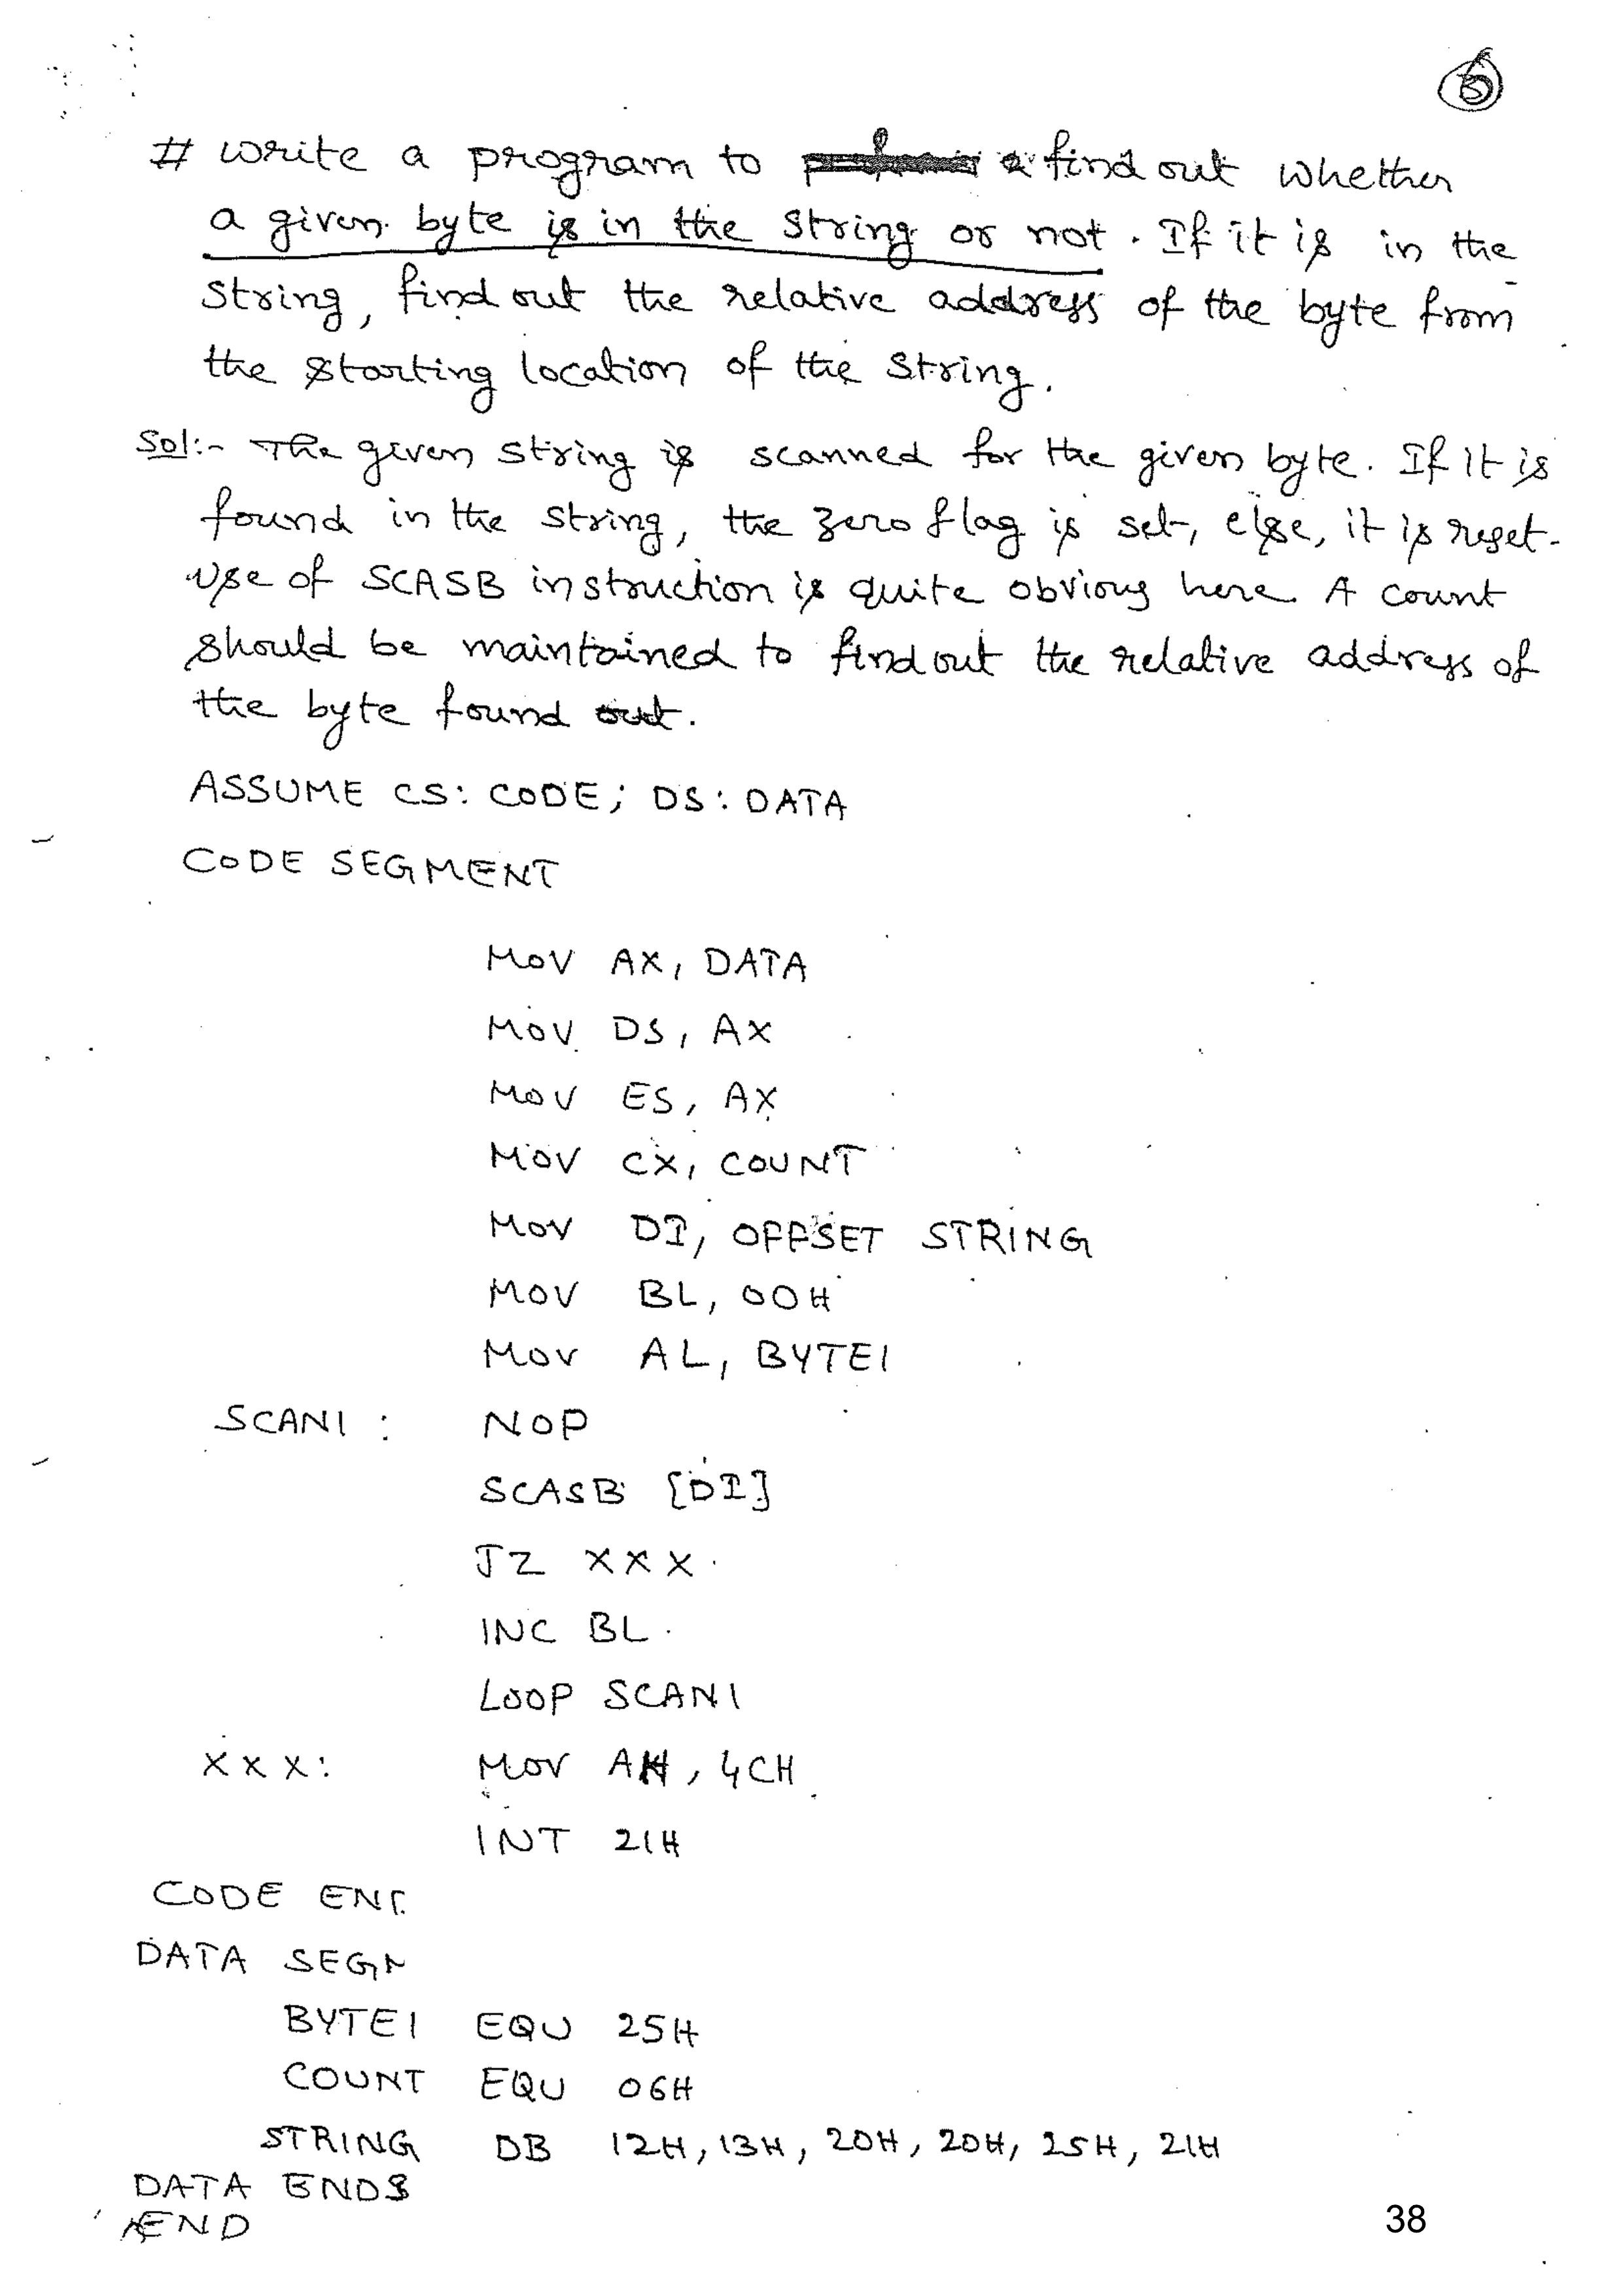 5
# Write a program to find out whether
a given byte is in the string or not. If it is in the
string, find out the relative address of the byte from
the starting location of the string.
Sol:- The given string is scanned for the given byte. If it is
found in the string, the zero flag is set, else, it is reset.
Use of SCASB instruction is quite obvious here. A count
should be maintained to find out the relative address of
the byte found out.
ASSUME CS: CODE; DS: DATA
CODE SEGMENT
MOV AX, DATA
MOV DS, AX
MOV ES, AX
MOV CX, COUNT
MOV DI, OFFSET STRING
MOV BL, 00H
MOV AL, BYTE1
SCAN1 : NOP
SCASB [DI]
JZ XXX
INC BL
LOOP SCAN1
XXX: MOV AH, 4CH
INT 21H
CODE EN
DATA SEG
BYTE1 EQU 25H
COUNT EQU 06H
STRING DB 12H, 13H, 20H, 20H, 25H, 21H
DATA ENDS
END
38